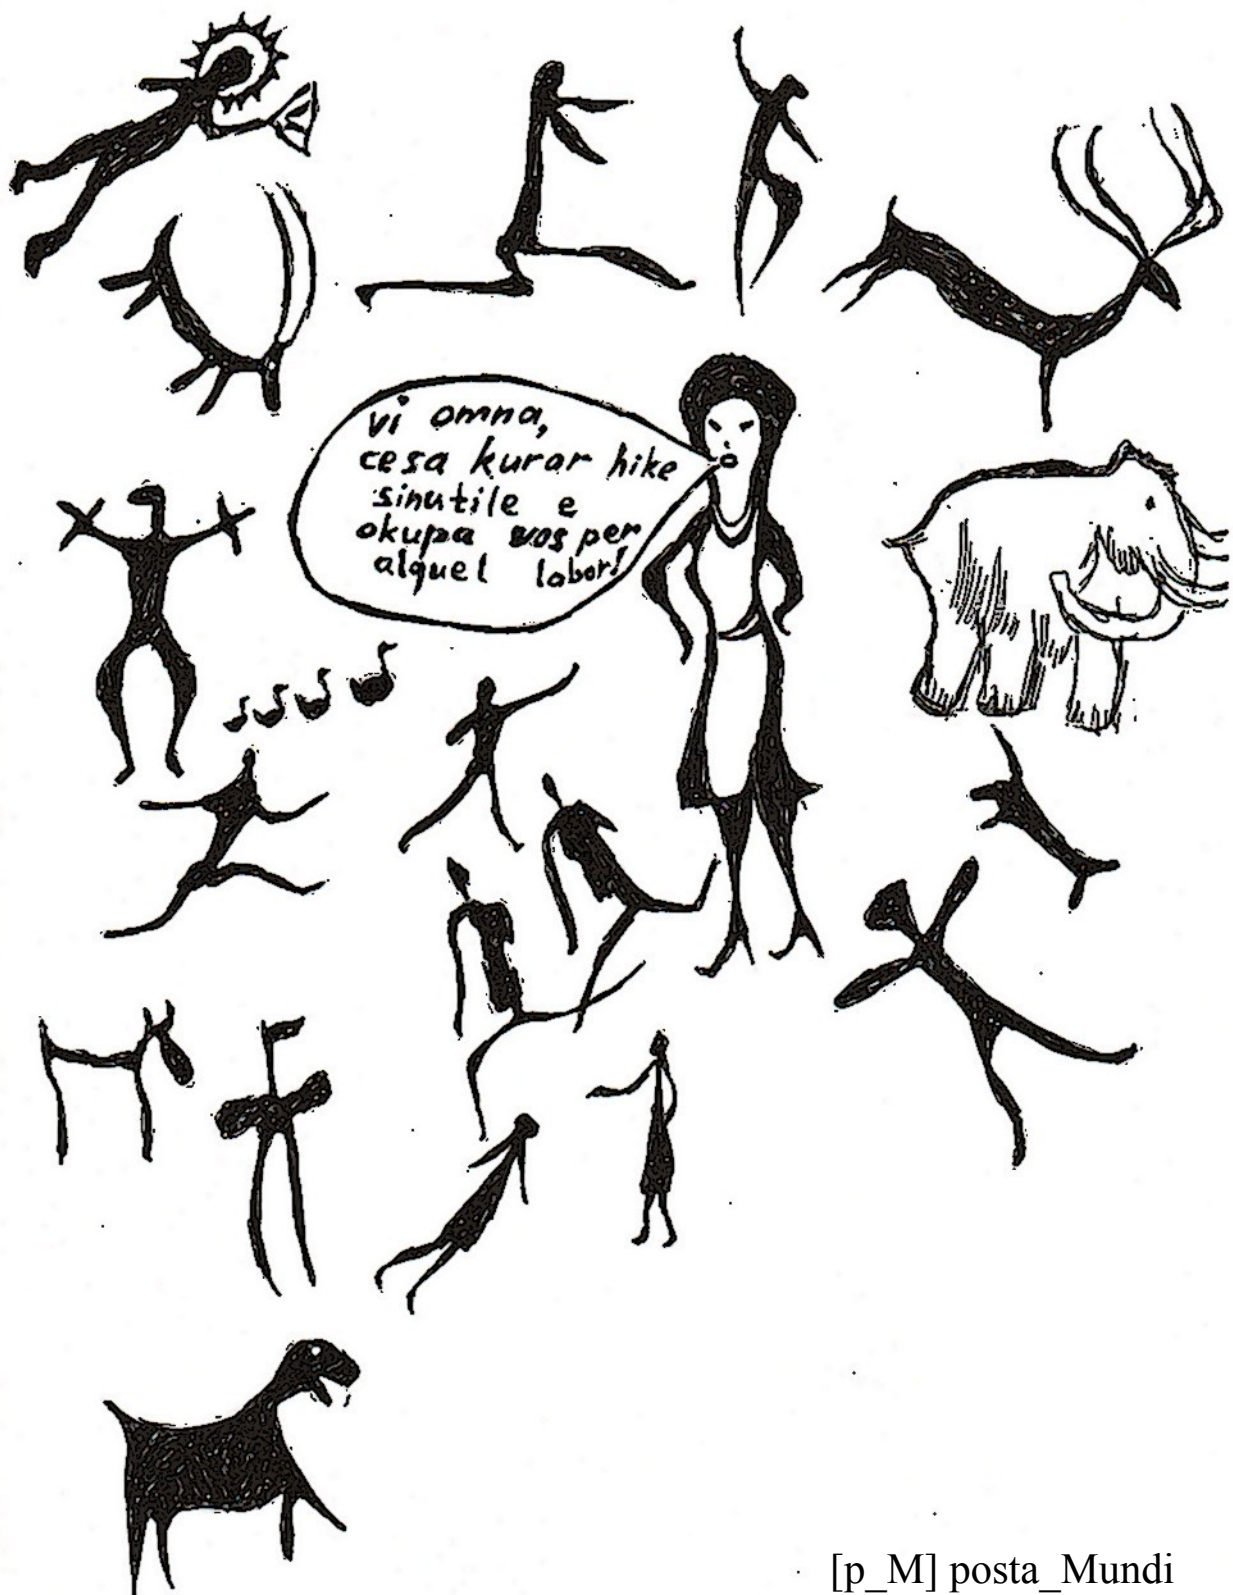 vi omna,
cesa kurar hike
sinutile e
okupa vos per
alquel labor!
[p_M] posta_Mundi